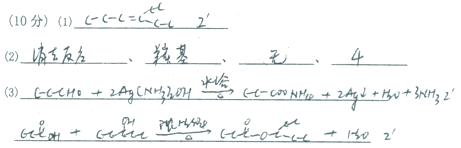 (10分) (1) C-C-C=C-C-C 2'
(2) 消去反应、羧基、无、4
(3) C-C-CHO + 2Ag(NH₃)₂OH 水浴 △ C-C-COONH₄ + 2Ag↓ + H₂O + 3NH₃ 2'
OH + 浓H₂SO₄ △ + H₂O 2'